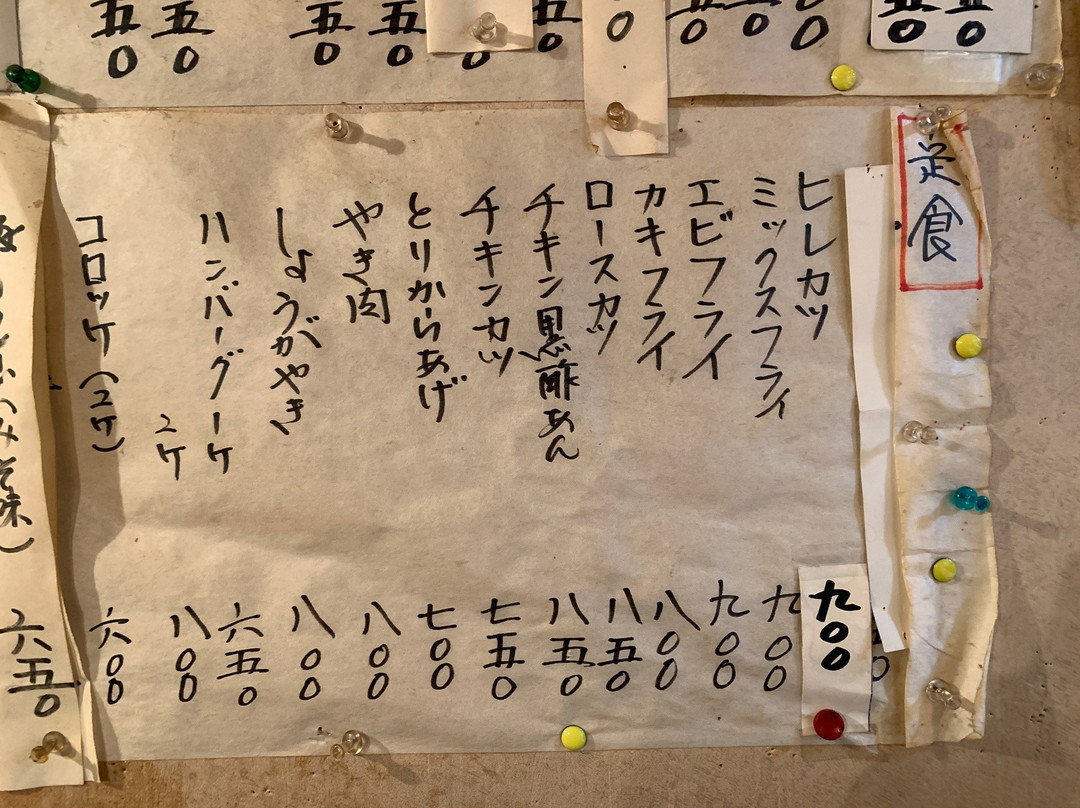 定食
ヒレカツ 九〇〇
ミックスフライ 九〇〇
エビフライ 九〇〇
カキフライ 八〇〇
ロースカツ 八五〇
チキン黒酢あん 八五〇
チキンカツ 七五〇
とりからあげ 七〇〇
やき肉 八〇〇
しょうがやき 八〇〇
ハンバーグ一ケ 六五〇
2ケ 八〇〇
コロッケ(2ケ) 六〇〇
みそ味) 六五〇